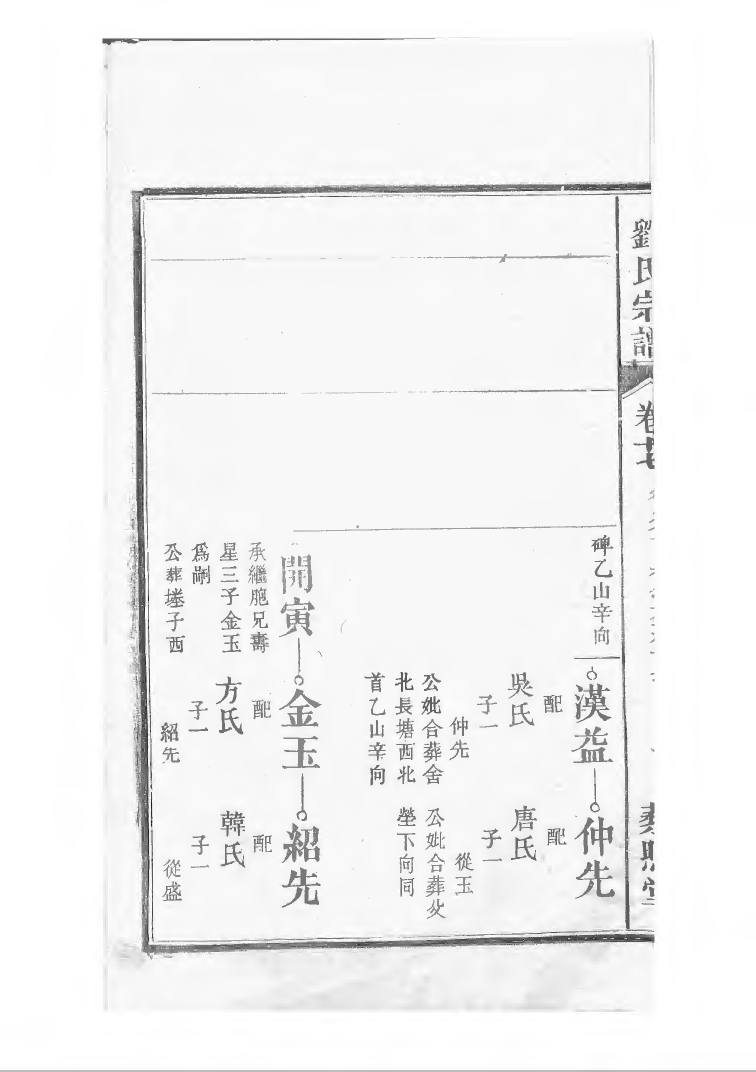 劉氏宗譜
碑乙山辛向
漢益
配
吳氏
子一
仲先
公妣合葬舍
北長塘西北
首乙山辛向
仲先
配
唐氏
子一
從玉
公妣合葬父
塋下向同
開寅
承繼胞兄壽
星三子金玉
爲嗣
公葬墶子西
金玉
配
方氏
子一
紹先
紹先
配
韓氏
子一
從盛